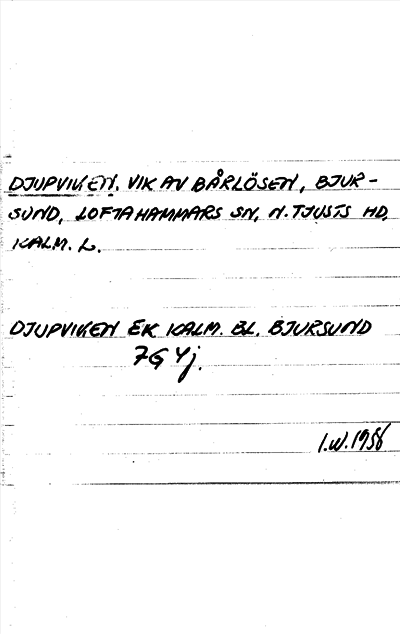 DJUPVIKEN. VIK AV BÅRLÖSEN, BJUR-
SUND, LOFTAHAMMARS SN, N. TJUSTS HD,
KALM. L.
DJUPVIKEN EK KALM. BL. BJURSUND
7G 4j.
I.W. 1956